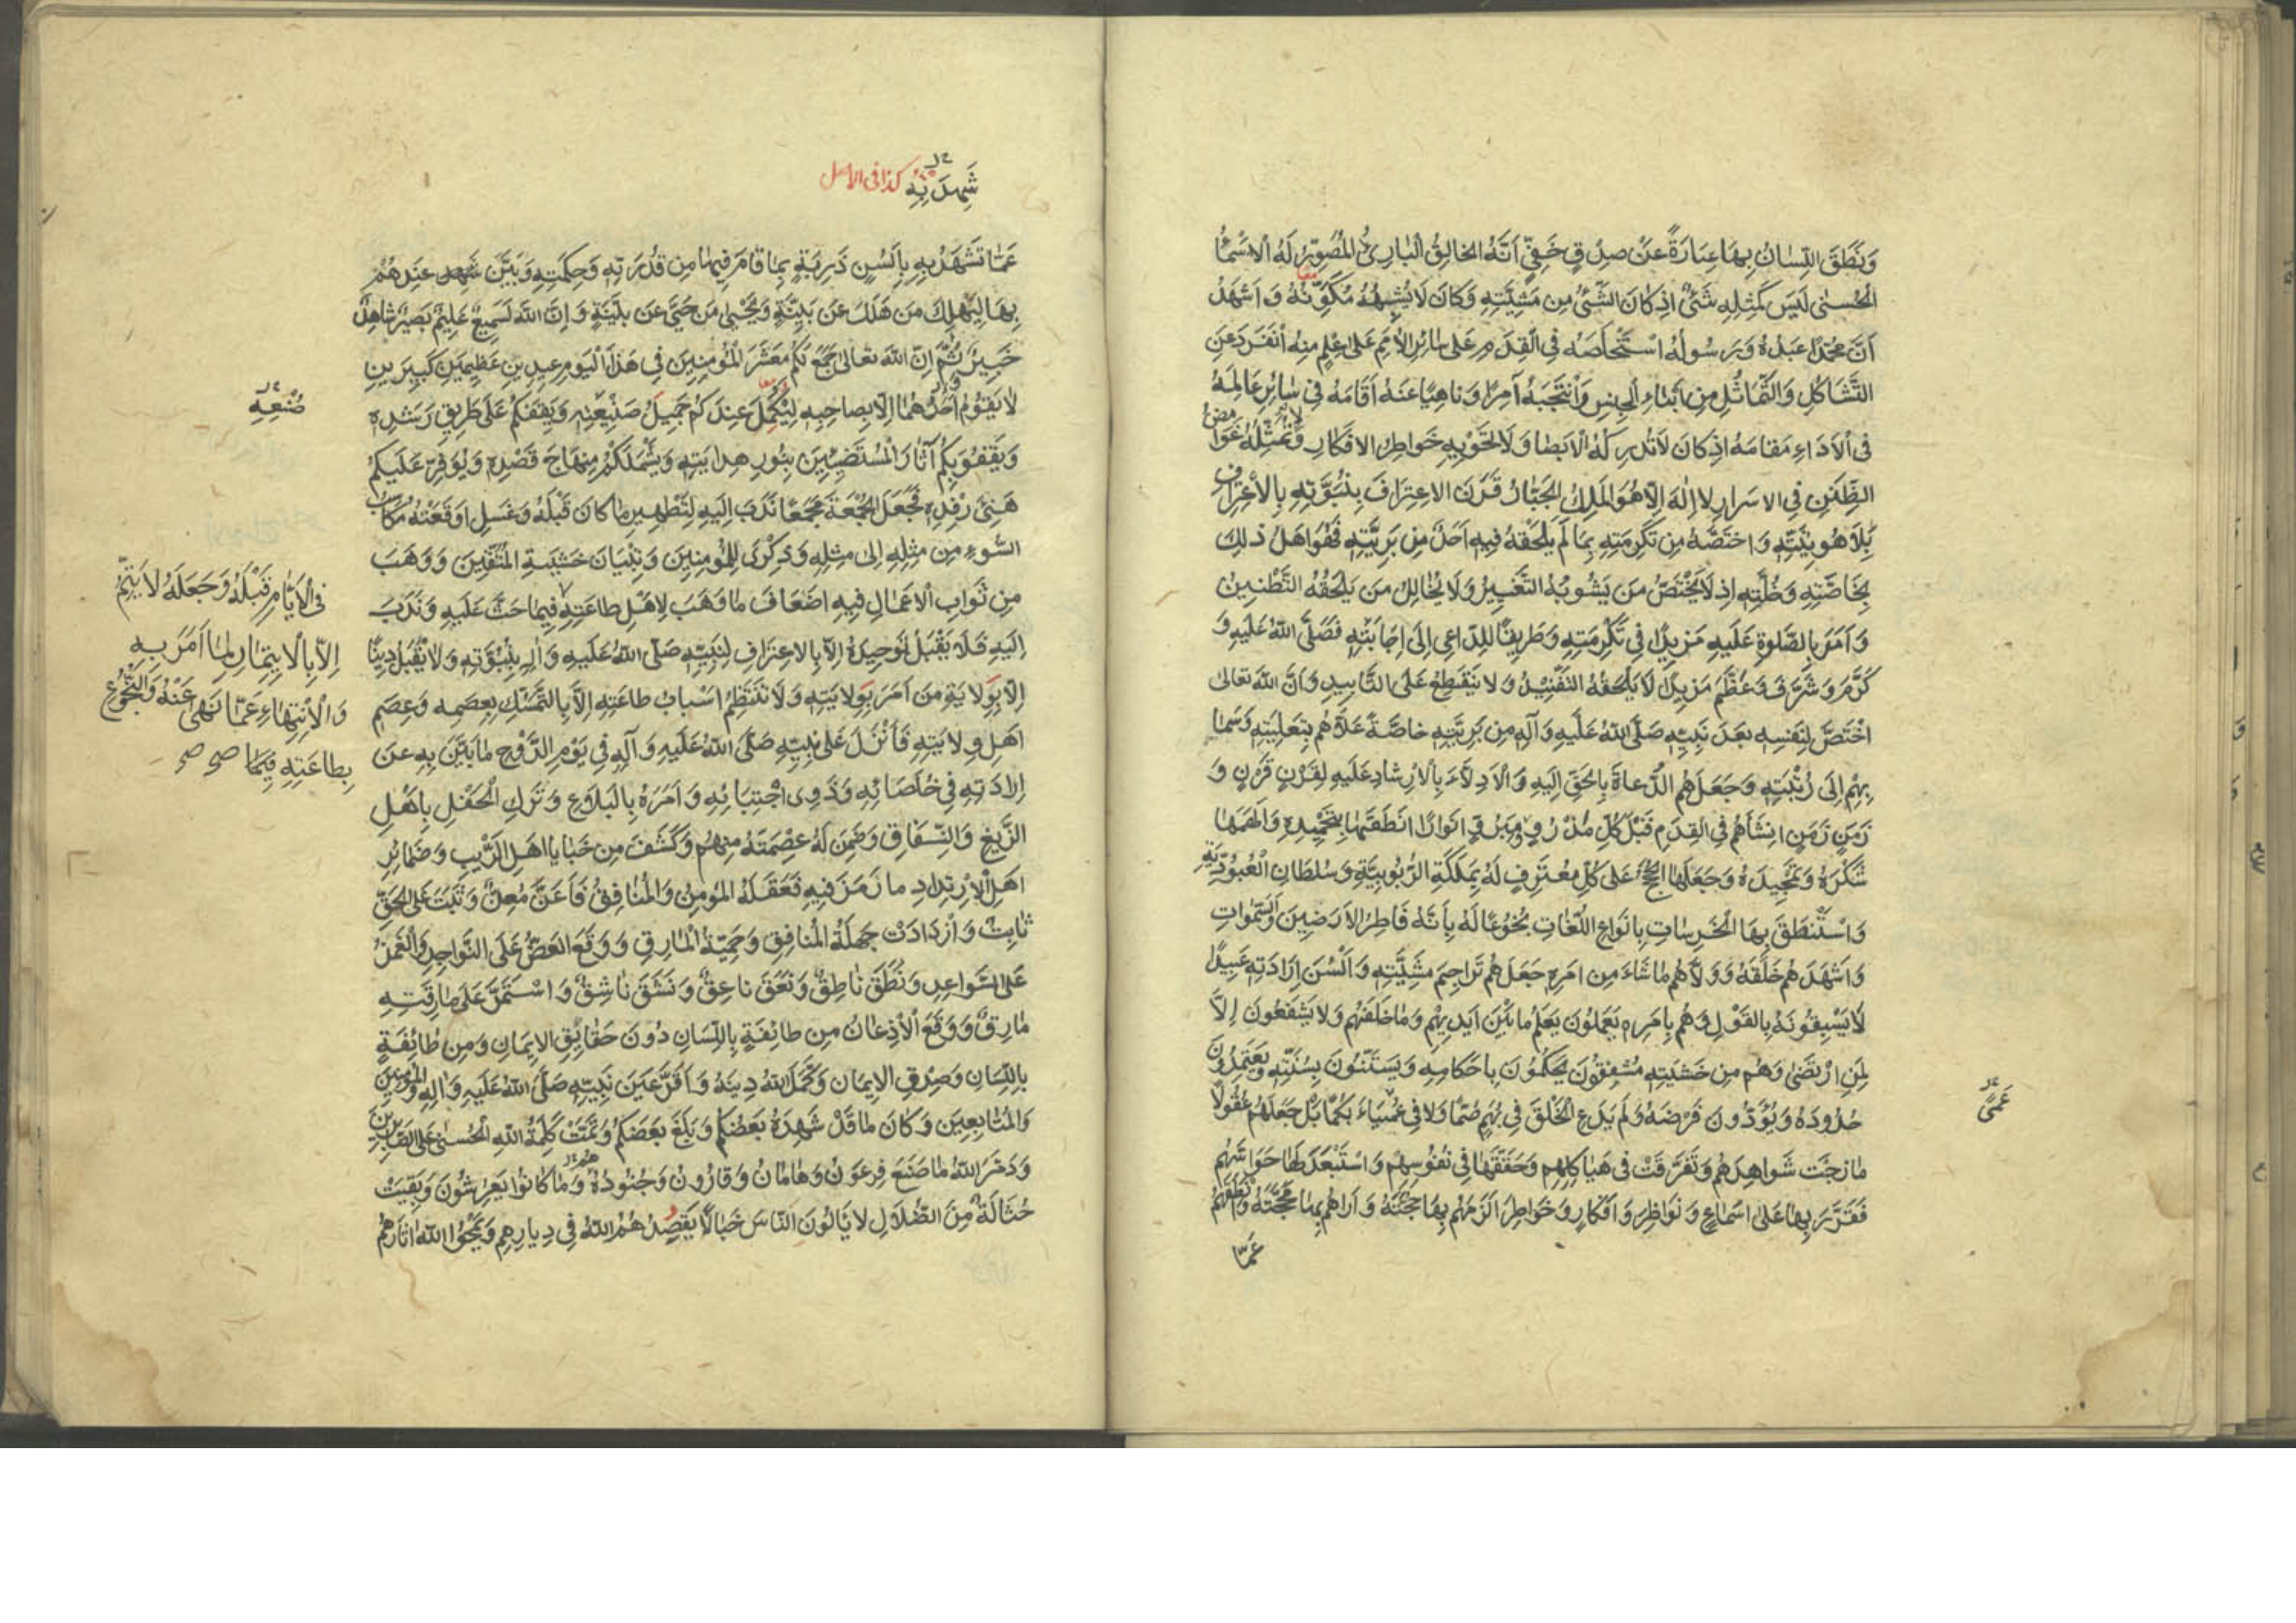 وَنَطَقَ اللِّسَانُ بِهَا عِبَارَةً عَنْ صِدْقٍ خَفِيٍّ اَنَّهُ الخالِقُ الْبَارِئُ الْمُصَوِّرُ لَهُ الْاَسْمَآءُ
الْحُسنىٰ لَيسَ كَمِثلِهِ شَئٌ اذِ كانَ الشَّئُ مِن مَشِيَّتِهِ وَكانَ لَا يُشْبِهُهُ مُكَوِّنُهُ وَاَشْهَدُ
اَنَّ مُحَمَّدًا عَبْدُهُ وَرَسُولُهُ اسْتَخْلَصَهُ فِي القِدَمِ عَلىٰ سٰائِرِ الْاُمَمِ عَلىٰ عِلْمٍ مِنهُ اْنفَرَدَ عَنِ
التَّشَاكُلِ وَالتَّمَاثُلِ مِن اَبْنٰاءِ الجِنسِ وَاْنتَجَبَهُ آمِرًا وَنٰاهِيًا عَنهُ اَقَامَهُ فِي سٰائِرِ عَالَمِهِ
فِي الْاَدَاءِ مَقَامَهُ اذِ كانَ لَا تُدْرِكُهُ الْاَبصَارُ وَلَا تَحوِيهِ خَواطِرُ الافكارِ وَلَا تُمَثِّلُهُ غَوَامِضُ
الظِّنَنِ فِي الاسرَارِ لا اِلٰهَ اِلّا هُوَ المَلِكُ الجَبَّارُ قَرَنَ الاعِترَافَ بِنُبُوَّتِهِ بِالْاعْتِرَافِ
بِلَاهُوتِيَّتِهِ وَاخْتَصَّهُ مِن تَكرِمَتِهِ بِمَا لَم يَلْحَقهُ فِيهِ اَحَدٌ مِن بَرِيَّتِهِ فَهُوَ اهلُ ذلِكَ
بِخَاصَّتِهِ وَخُلَّتِهِ اذِ لَا يَخْتَصُّ مَن يَشُوبُهُ التَّغيِيرُ وَلَا يُخَالِلُ مَن يَلْحَقُهُ التَّظْنِينُ
وَاَمَرَ بِالصَّلوٰةِ عَلَيهِ مَزِيدًا فِي تَكْرِمَتِهِ وَطَرِيقًا لِلدّاعِي اِلَى اِجابَتِهِ فَصَلَّى اللّٰهُ عَلَيهِ وَ
كَرَّمَ وَشَرَّفَ وَعَظَّمَ مَزِيدًا لَا يَلْحَقُهُ التَفْنِيْدُ وَلا يَنْقَطِعُ عَلَى التَّابِيدِ وَاَنَّ اللّٰهَ تعالىٰ
اخْتَصَّ لِنَفسِهِ بَعدَ نَبِيِّهِ صَلَّى اللّٰهُ عَلَيهِ وَآلِهِ مِن بَرِيَّتِهِ خاصَّةً عَلَاهُم بِتَعلِيَتِهِ وَسَمَا
بِهِم اِلَى رُتْبَتِهِ وَجَعَلَهُم الدُّعاةَ بِالحَقِّ اِلَيهِ وَالْاَدِلّآءَ بِالْارشادِ عَلَيهِ لِقَرْنٍ قَرْنٍ وَ
زَمَنٍ زَمَنٍ انشَاَهُم فِي القِدَمِ قَبْلَ كُلِّ مَذْرُوٍّ وَمَبرُوٍّ اَنوَارًا انطَقَهَا بِتَحمِيدِهِ وَالهَمَهٰا
شُكْرَهُ وَتَمْجِيدَهُ وَجَعَلَهَا الحُجَجَ عَلىٰ كُلِّ مُعتَرِفٍ لَهُ بِمَلَكَةِ الرُّبُوبِيَّةِ وَسُلطَانِ الْعُبُودِيَّةِ
وَاسْتَنطَقَ بِهَا الْخَرِسَاتِ بِانوَاعِ اللُّغَاتِ بُخُوعًا لَهُ بِأَنَّهُ فَاطِرُ الاَرَضِينَ وَالسَّمٰوَاتِ
وَاَشهَدَهُم خَلَقَهُ وَوَلَّاهُم مٰا شَاءَ مِن امرِهِ جَعَلَهُم تَرَاجِمَ مَشِيَّتِهِ وَاَلْسُنَ اِرَادَتِهِ عَبِيدًا
لَا يَسْبِقُونَهُ بِالقَوْلِ وَهُم بِاَمرِهِ يَعمَلُونَ يَعلَمُ مابَيْنَ اَيدِيهِم وَمٰاخَلفَهُم وَلا يَشفَعُونَ اِلَّا
لِمَنِ ارْتَضىٰ وَهُم مِن خَشْيَتِهِ مُشفِقُونَ يَحكُمُونَ بِاَحكامِهِ وَيَستَنُّونَ بِسُنَّتِهِ وَيَعتَمِدُونَ
حُدُودَهُ وَيُؤَدُّونَ فَرْضَهُ وَلَم يَدَعِ الْخَلْقَ فِي بُهَمٍ صُمًّا وَلا فِي عَمْيَاءَ بُكْمًا بَلْ جَعَلَ لَهُم عُقُولًا
عَمىً
مٰازَجَتْ شَواهِدَهُم وَتَفَرَّقَتْ فِي هَيٰاكِلِهِم وَحَقَّقَهَا فِي نُفُوسِهِم وَاسْتَعبَدَ لَهَا حَوَاسَّهُم
فَقَرَّرَ بِهَا عَلىٰ اسْمَاعٍ وَنَوَاظِرَ وَافكَارٍ وَخَوَاطِرَ اَلْزَمَهُم بِهَا حُجَّتَهُ وَاَرَاهُم بِهٰا مَحَجَّتَهُ وَاَنْطَقَهُم
عَمَّا
شَهِدَ بِهِ كذا فى الاصل
عَمّا تَشهَدُ بِهِ بِاَلْسُنٍ ذَرِبَةٍ بِمٰا قَامَ فِيهَا مِن قُدْرَتِهِ وَحِكمَتِهِ وَبَيَّنَ عِنْدَهُمْ
بِهَا لِيَهلِكَ مَن هَلَكَ عَن بَيِّنَةٍ وَيَحْيىٰ مَن حَيَّ عَن بَيِّنَةٍ وَاِنَّ اللّٰهَ لَسَمِيعٌ عَلِيمٌ بَصِيرٌ شَاهِدٌ
خَبِيرٌ ثُمَّ اِنَّ اللّٰهَ تَعَالىٰ جَمَعَ لَكُم مَعْشَرَ المُؤمِنِينَ فِي هَذَا الْيَومِ عِيدَينِ عَظِيمَينِ كَبِيرَينِ
لٰا يَقُومُ اَحَدُهُمٰا اِلّا بِصاحِبِهِ لِيُكَمِّلَ عِندَكُم جَمِيلَ صَنِيعَتِهِ وَيَقِفَكُم عَلىٰ طَرِيقِ رُشْدِهِ
صُنْعِهِ
وَيَقفُوَ بِكُم آثَارَ الْمُستَضِيئِينَ بِنُورِ هِدايَتِهِ وَيَشْمَلَكُمْ مِنهَاجَ قَصْدِهِ وَيُوَفِّرَ عَلَيكُم
هَنِيءَ رِفْدِهِ فَجَعَلَ الجُمُعَةَ مَجمَعًا نَدَبَ اِلَيهِ لِتَطهِيرِ مٰا كانَ قَبْلَهُ وَغَسْلِ اَوقَعَتْهُ مَكَاسِبُ
السُّوءِ مِن مِثلِهِ اِلىٰ مِثلِهِ وَذِكْرَى لِلمُؤمِنِينَ وَتِبْيَانَ خَشْيَةِ المُتَّقِينَ وَوَهَبَ
مِن ثَوَابِ الْاَعمَالِ فِيهِ اضعَافَ مٰا وَهَبَ لِاَهْلِ طاعَتِهِ فِيمَا حَثَّ عَلَيهِ وَنَدَبَ
فِي الْاَيَّامِ قَبْلَهُ وَجَعَلَهُ لَا يَتِمُّ
اِلّا بِالْاِيتِمَارِ لِمٰا اَمَرَ بِهِ
وَالْاِنتِهَاءِ عَمَّا نَهىٰ عَنْهُ وَالْبُخُوعِ
بِطاعَتِهِ فِيمَا صح صح
اِلَيهِ فَلَا يَقْبَلُ تَوحِيدَهُ اِلّا بِالاعِترَافِ لِنَبِيِّهِ صَلَّى اللّٰهُ عَلَيهِ وَآلِهِ بِنُبُوَّتِهِ وَلَا يَقْبَلُ دِينًا
اِلّا بِوَلايَةِ مَن اَمَرَ بِوِلايَتِهِ وَلَا تَنْتَظِمُ اسْبَابُ طاعَتِهِ اِلَّا بِالتَّمَسُّكِ بِعِصَمِهِ وَعِصَمِ
اهَلِ وِلايَتِهِ فَاَنْزَلَ عَلىٰ نَبِيِّهِ صَلَّى اللّٰهُ عَلَيهِ وَآلِهِ فِي يَومِ الدَّوْحِ مٰا بَيَّنَ بِهِ عَن
اِرادَتِهِ فِي خُلَصَائِهِ وَذَوِي اجْتِبَائِهِ وَاَمَرَهُ بِالبَلاغِ وَتَركِ الْحَفْلِ بِاَهْلِ
الزَّيغِ وَالنِّفَاقِ وَضَمِنَ لَهُ عِصْمَتَهُ مِنهُم وَكَشَفَ مِن خَبٰايا اهَلِ الرَّيبِ وَضَمٰائِرِ
اهَلِ الْاِرتِدادِ مٰا رَمَزَ فِيهِ فَعَقَلَهُ المُؤمِنُ وَالمُنَافِقُ فَاَعَنَّ مُعِنٌّ وَثَبَتَ عَلَى الحَقِّ
ثٰابِتٌ وَازْدَادَتْ جَهلَةُ المُنَافِقِ وَحَمِيَّةُ الْمَارِقِ وَوَقَعَ العَضُّ عَلَى النَّواجِدِ وَالْغَمْزُ
عَلَى السَّواعِدِ وَنَطَقَ نَاطِقٌ وَنَعَقَ ناعِقٌ وَنَشَقَ نَاشِقٌ وَاستَمَرَّ عَلىٰ مَارِقَتِهِ
مَارِقٌ وَوَقَعَ الْاِذعَانُ مِن طائِفَةٍ بِاللِّسَانِ دُونَ حَقَايِقِ الايمَانِ وَمِن طٰائِفَةٍ
بِاللِّسَانِ وَصِدْقِ الايمَانِ وَكَمَّلَ اللّٰهُ دِينَهُ وَاَقَرَّ عَينَ نَبِيِّهِ صَلَّى اللّٰهُ عَلَيهِ وَآلِهِ وَالمُؤمِنِينَ
وَالمُتَابِعِينَ وَكَانَ مَا قَدْ شَهِدَهُ بَعضُكُم وَبَلَغَ بَعضَكُم وَتَمَّتْ كَلِمَةُ اللّٰهِ الْحُسنىٰ عَلَى الصّابِرِينَ
وَدَمَّرَ اللّٰهُ مٰا صَنَعَ فِرعَونُ وَهٰامَانُ وَقٰارُونُ وَجُنُودُهُ وَمٰا كٰانُوا يَعرِشُونَ وَبَقِيَتْ
حُثَالَةٌ مِنَ الضُّلَّالِ لَا يَالُونَ النّاسَ خَبَالًا يَقصِدُهُمُ اللّٰهُ فِي دِيارِهِم وَيَمْحُوا اللّٰهُ اثَارَهُمْ